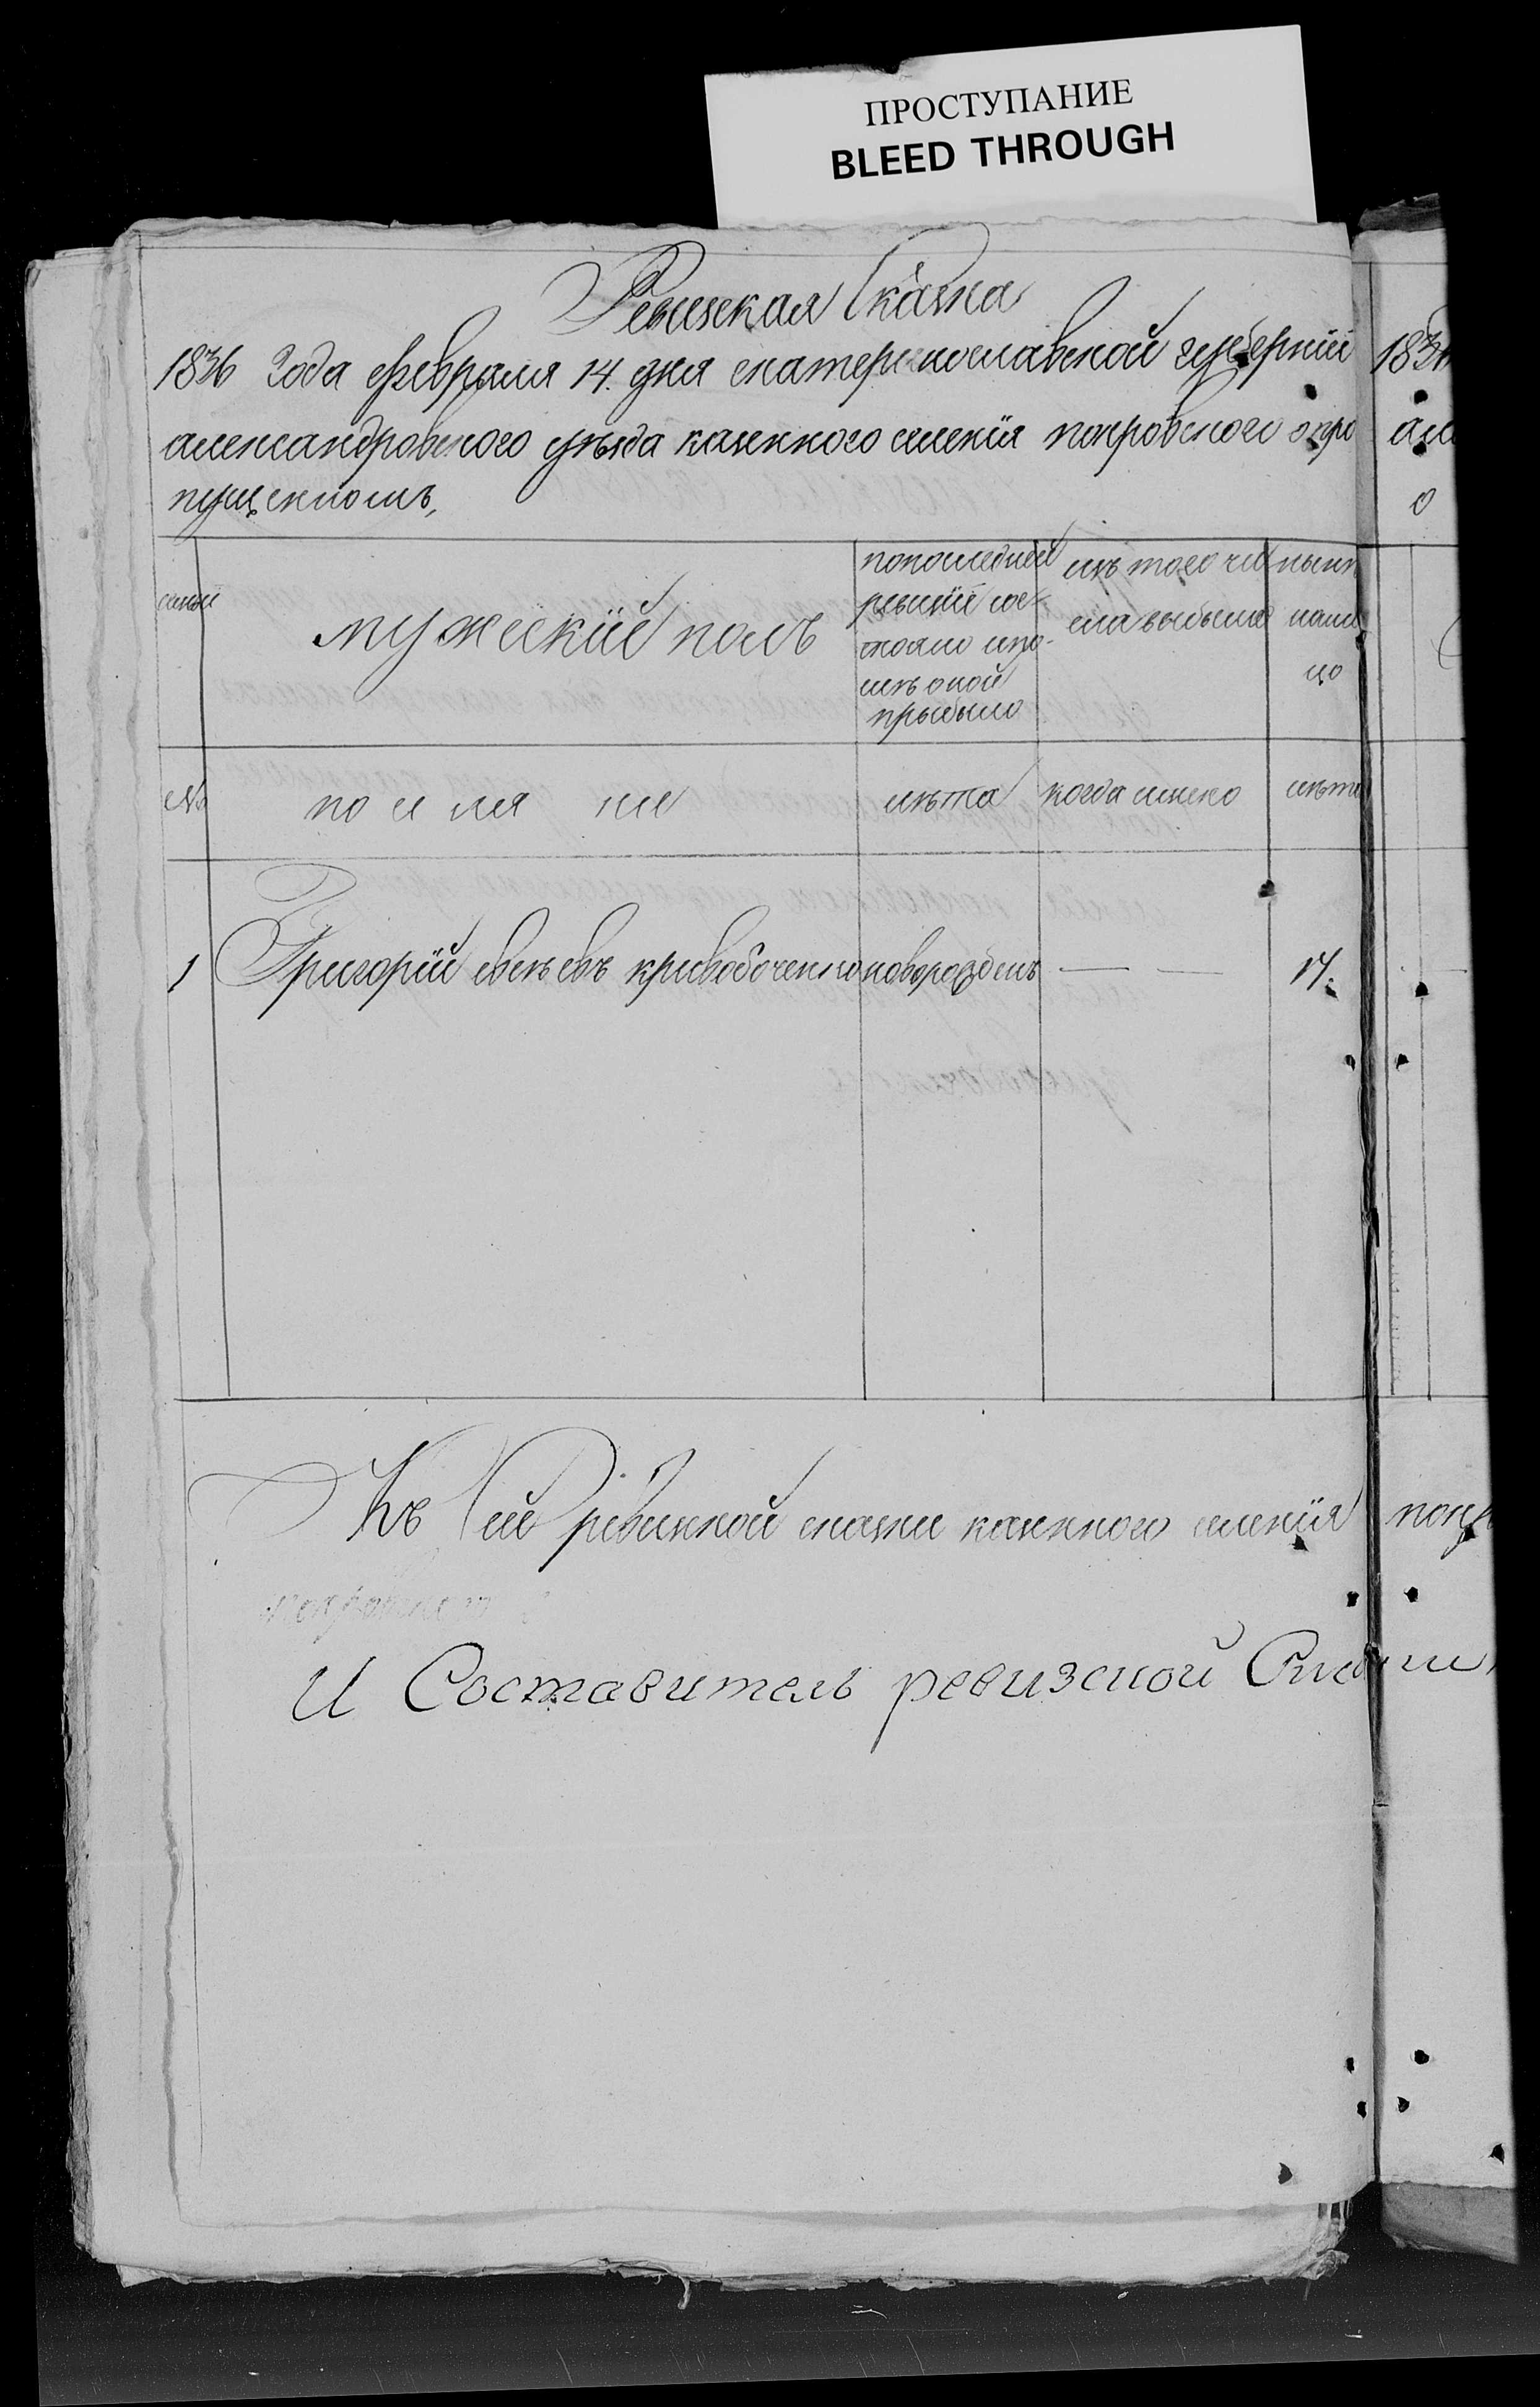 ПРОСТУПАНИЕ
BLEED THROUGH
Ревизская Сказка
1836 Года февраля 14. дня екатеринославской губернии
александровского уезда казенного селенія покровского о про
пущенномъ,
семьи
мужескій полъ
попоследней
ревизіи сос-
тояло ипо-
слѣ оной
прыбыло
изъ того чи
сла выбыло
нынѣ
нали
цо
№
поименно
лѣта
когда имено
лѣта
1 Григорій кривобоченко новорожденъ — — 17.
Къ Сей ревизкой сказки казенного селенія
И Составитель ревизской
1836
але
о